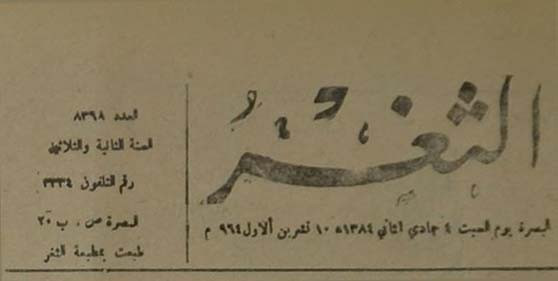 الثغر
البصرة يوم السبت ٤ جمادي الثاني ١٣٨٤ ه ١٠ تشرين الاول ٩٦٤ م
العدد ٨٣٩٨
السنة الثانية والثلاثون
رقم التلفون ٣٣٣٤
البصرة ص . ب ٢٠
طبعت بمطبعة الثغر